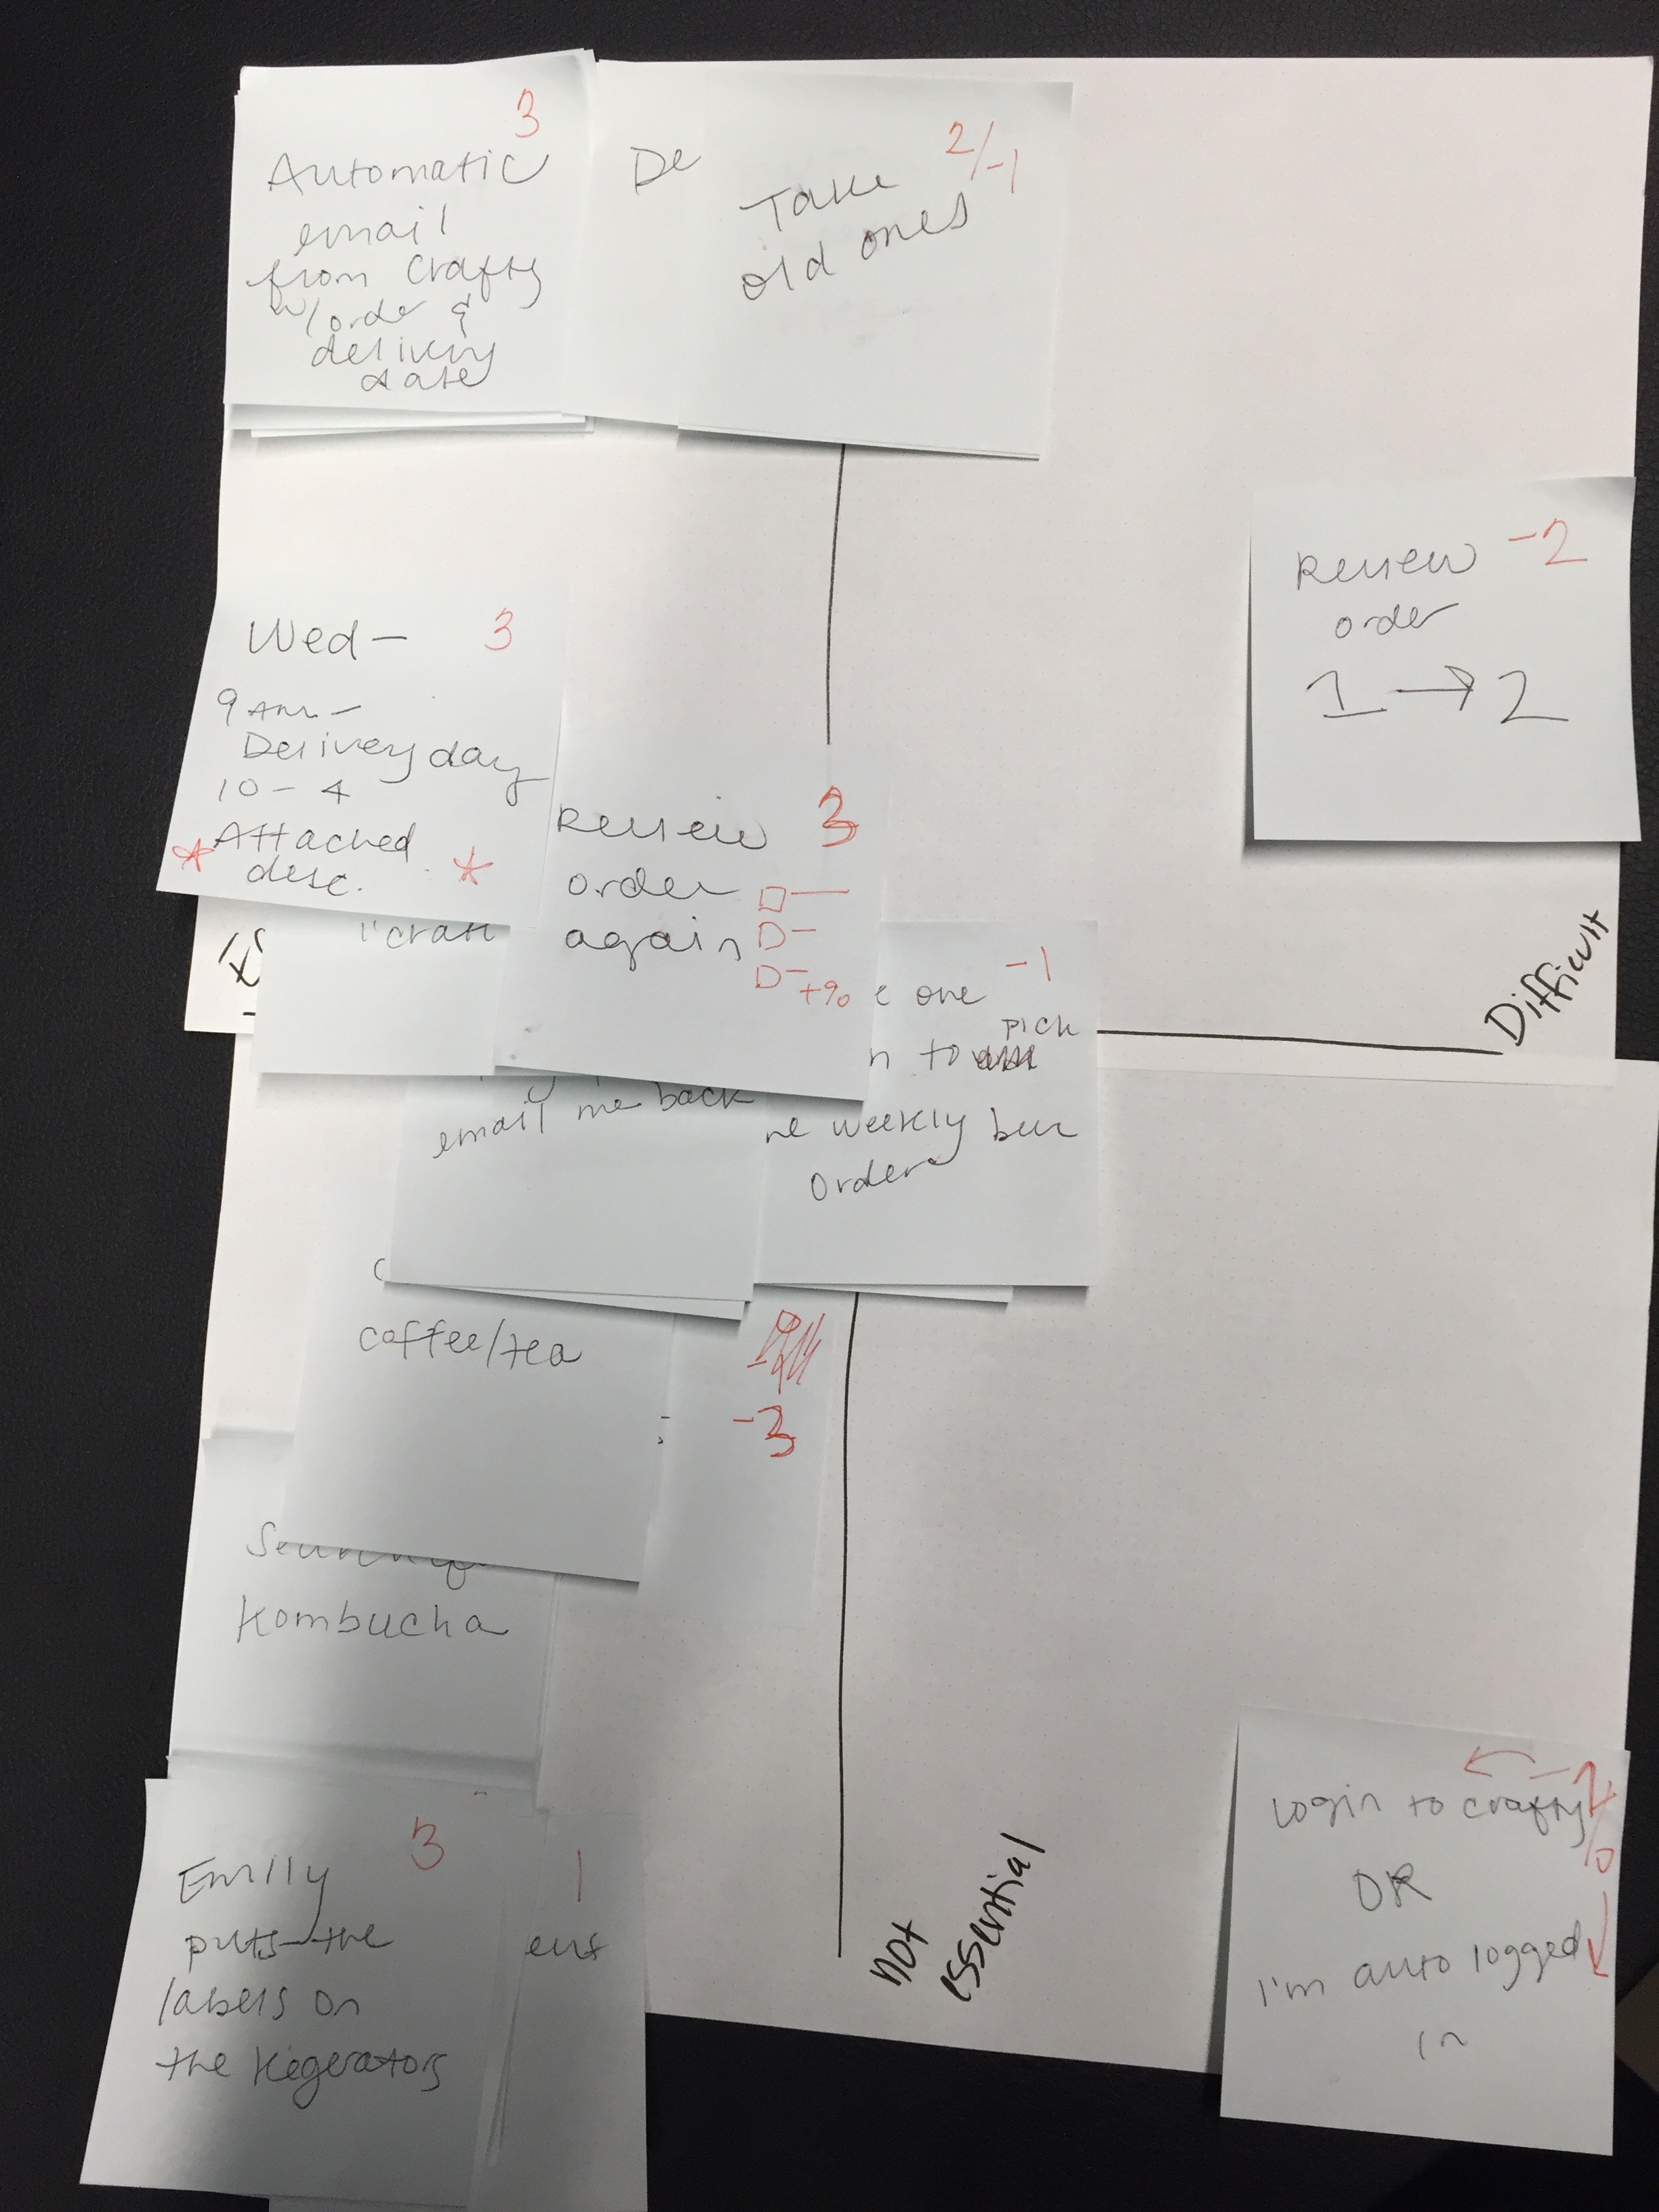 3
Automatic
email
from Crafty
w/ order &
delivery
date
De
2/-1
Take
old ones
-2
Review
order
1 → 2
Wed - 3
9 am -
Delivery day
10 - 4
Attached
desc.
Review 3
order
again
+%
Difficult
-1
e one
pick
n to
ne weekly beer
order
email me back
coffee/tea
-3
Kombucha
3
Emily
puts the
labels on
the kegerators
1
ent
not
essential
Login to crafty
OR
I'm auto logged
in